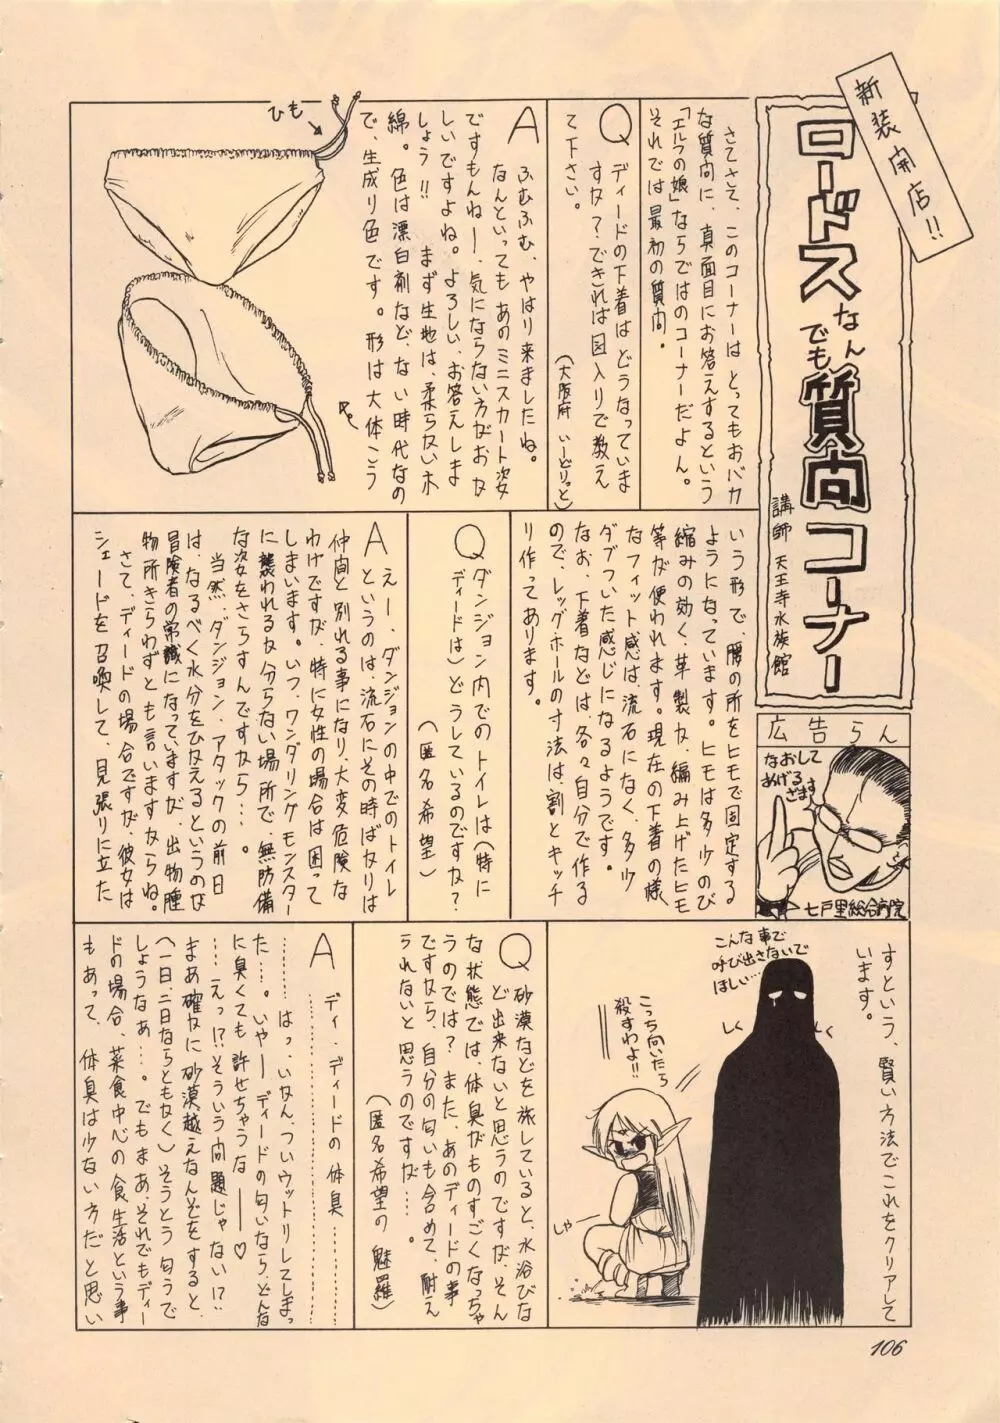 新装開店!!
ロードス
なん
でも
質問コーナー
講師 天王寺水族館
さてさて、このコーナーは とってもおバカ
な質問に、真面目にお答えするという
「エルフの娘」ならではのコーナーだよん。
それでは最初の質問。
Q ディードの下着は どうなっていま
すか?できれば図入りで教え
て下さい。
(大阪府 いーどりっと)
A ふむふむ、やはり来ましたね。
なんといっても あのミニスカート姿
ですもんねー、気にならない方がおか
しいですよね。よろしい、お答えしま
しょう!! まず生地は、柔らかい木
綿。色は漂白剤など、ない時代なの
で、生成り色です。形は大体こう
ひも
いう形で、腰の所をヒモで固定する
ようになっています。ヒモは多少のび
縮みの効く、革製か、編み上げたヒモ
等が使われます。現在の下着の様
なフィット感は、流石になく、多少
ダブついた感じになるようです。
なお、下着などは各々自分で作る
ので、レッグホールの寸法は、割とキッチ
リ作ってあります。
Q ダンジョン内でのトイレは(特に
ディードは)どうしているのですか?
(匿名希望)
A えー、ダンジョンの中でのトイレ
というのは、流石にその時ばかりは
仲間と別れる事になり、大変危険な
わけですが、特に女性の場合は困って
しまいます。いつ、ワンダリングモンスター
に襲われるか分らない場所で、無防備
な姿をさらすんですから…。
当然、ダンジョン・アタックの前日
は、なるべく水分をひかえるというのが
冒険者の常識になっていますが、出物腫
物所きらわずとも言いますからね。
さて、ディードの場合ですが、彼女は
シェードを召喚して、見張りに立た
広告らん
なおして
あげる
ざます
七戸里総合病院
すという、賢い方法でこれをクリアして
います。
こんな事で
呼び出さないで
ほしい…
しく
しく
こっち向いたら
殺すわよ!!
しゃー
Q 砂漠などを旅していると、水浴びな
ど出来ないと思うのですが、そん
な状態では、体臭がものすごくなっちゃ
うのでは?また、あのディードの事
ですから、自分の匂いも含めて、耐え
られないと思うのですが…。
(匿名希望の 魅羅)
A ディ、ディードの 体臭………
………はっ、いかん、ついウットリしてしまっ
た…。いやーディードの匂いなら、どんな
に臭くても許せちゃうな――♡
…えっ!?そういう問題じゃない!?
まあ確かに砂漠越えなんぞをすると、
(一日、二日ならともかく)そうとう匂うで
しょうなぁ…。でもまあ、それでもディー
ドの場合、菜食中心の食生活という事
もあって、体臭は少ない方だと思い
106